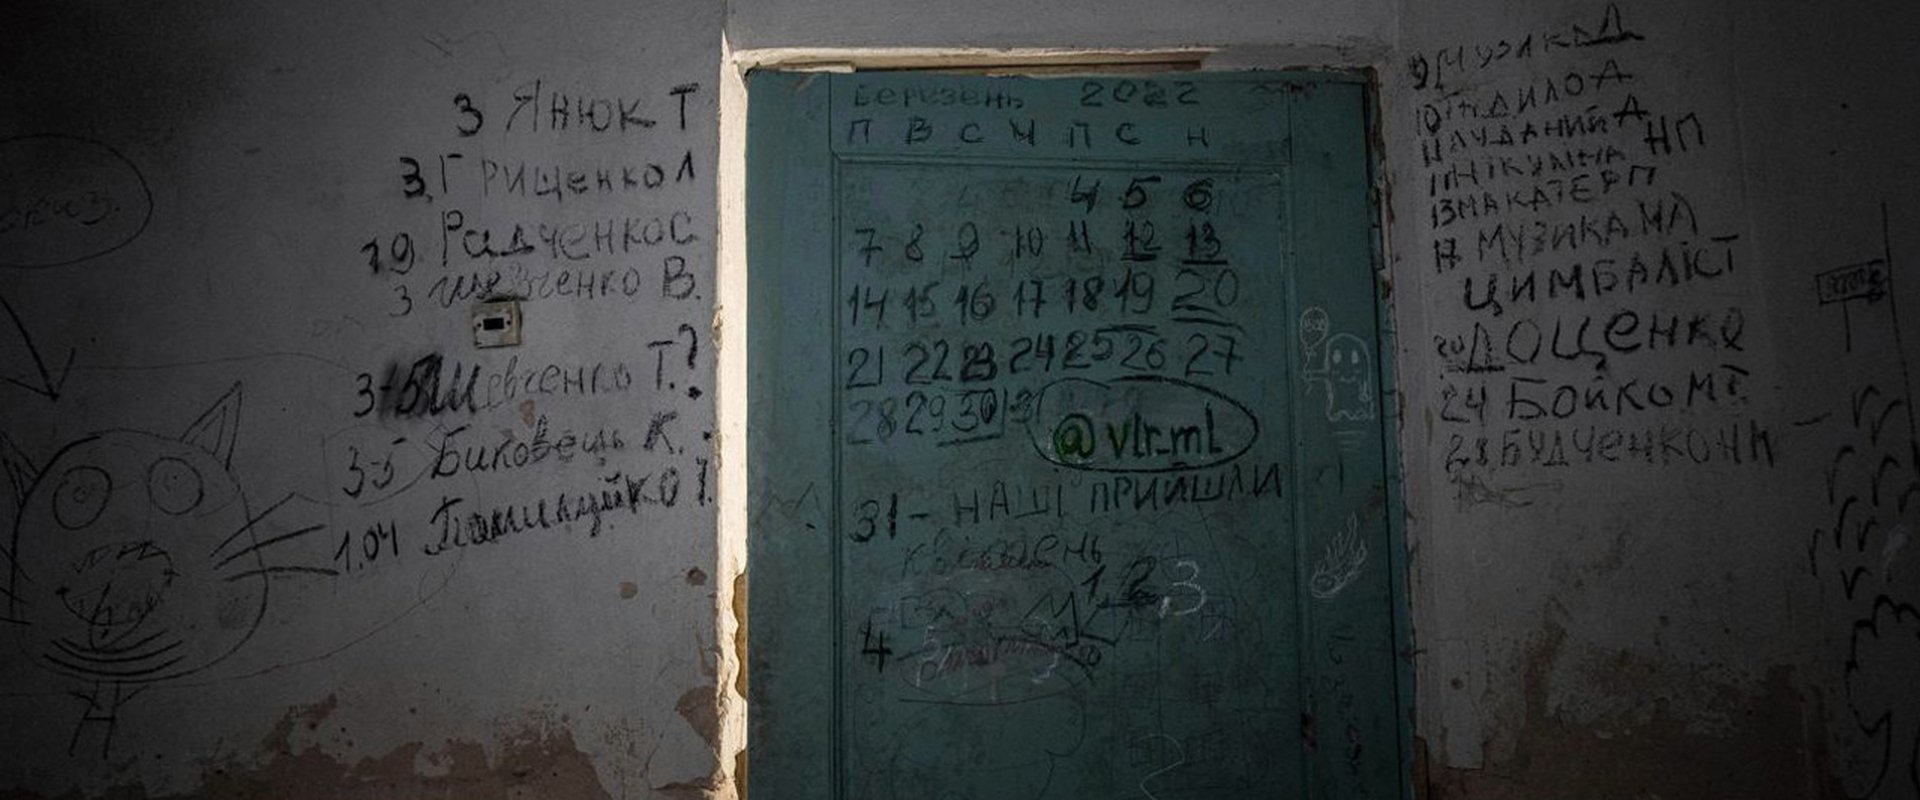 3 ЯНЮК Т
3. ГРИЩЕНКО Л
19 РАДЧЕНКО С
3 Шевченко В.
Шевченко Т.?
3-5 Биковець К.
1.04 Помилуйко І.
Березень 2022
П В С Ч П С Н
4 5 6
7 8 9 10 11 12 13
14 15 16 17 18 19 20
21 22 23 24 25 26 27
28 29 30 31
@vlr.ml
31 - НАШІ ПРИЙШЛИ
квітень
1 2 3
4
9 МУЗИКА Д
ЛУДАНИЙ Д
НІКУЛІНА НП
13 МАКАТЕР П
17 МУЗИКА МА
ЦИМБАЛІСТ
20 ДОЦЕНКО
24 БОЙКО МТ
28 БУДЧЕНКО НИ